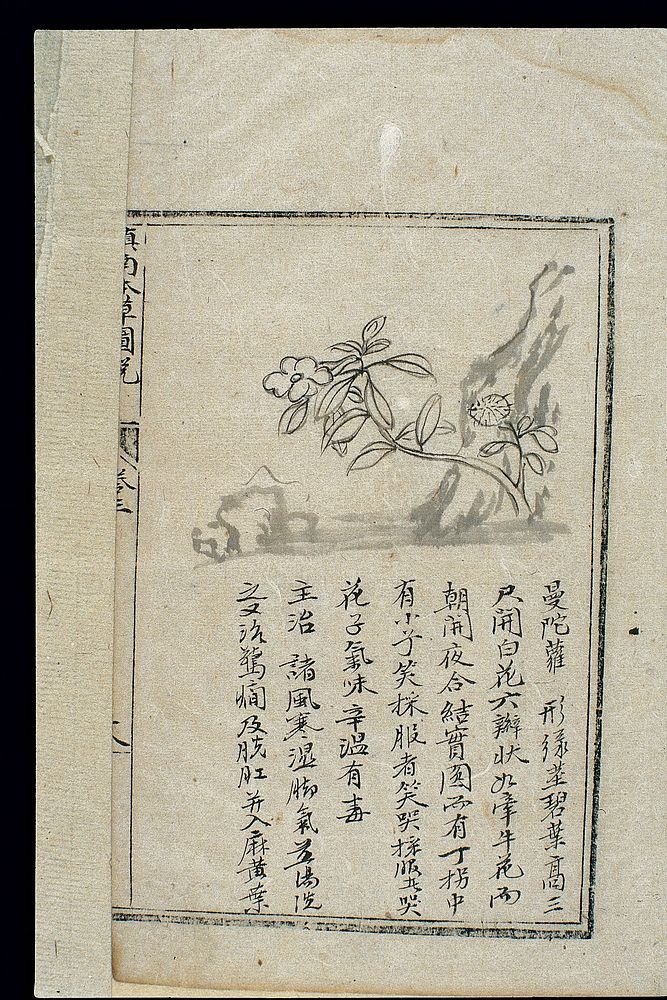 曼陀蘿　形綠莖碧葉高三
尺開白花六瓣狀如牽牛花而
朝開夜合結實圓而有丁拐中
有小子笑採服者笑哭採服者哭
花子氣味辛溫有毒
主治　諸風寒湿脚氣煎湯洗
之又治驚癇及脱肛并入麻黄葉
滇南本草圖説
卷三